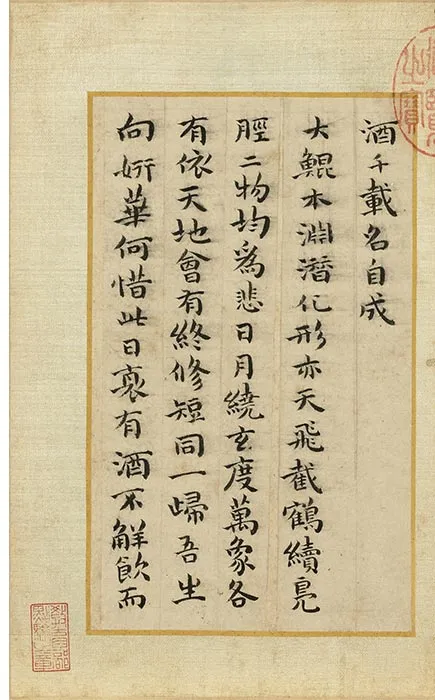 酒千載名自成
大鯤本淵潛化形亦天飛截鶴續鳧
脛二物均爲悲日月繞玄度萬象各
有依天地會有終修短同一歸吾生
向妍華何惜此日衰有酒不觧飲而
教育部
點驗之章